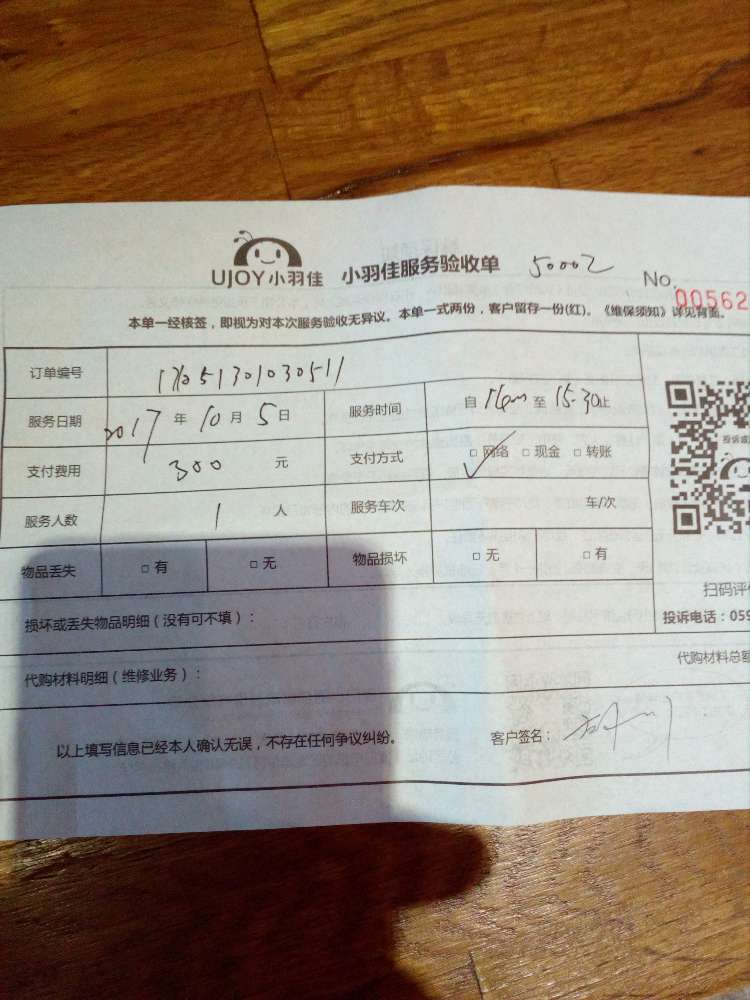 UJOY小羽佳 小羽佳服务验收单 50002 No. 00562
本单一经核签，即视为对本次服务验收无异议。本单一式两份，客户留存一份(红)。《维保须知》详见背面。
订单编号
服务日期 2017 年 10 月 5 日 服务时间 自 至 15:30止
支付费用 300 元 支付方式 □ 网络 □ 现金 □ 转账
服务人数 1 人 服务车次 车/次
物品丢失 □ 有 □ 无 物品损坏 □ 无 □ 有
扫码评
损坏或丢失物品明细（没有可不填）： 投诉电话：059
代购材料明细（维修业务）： 代购材料总额
以上填写信息已经本人确认无误，不存在任何争议纠纷。 客户签名：